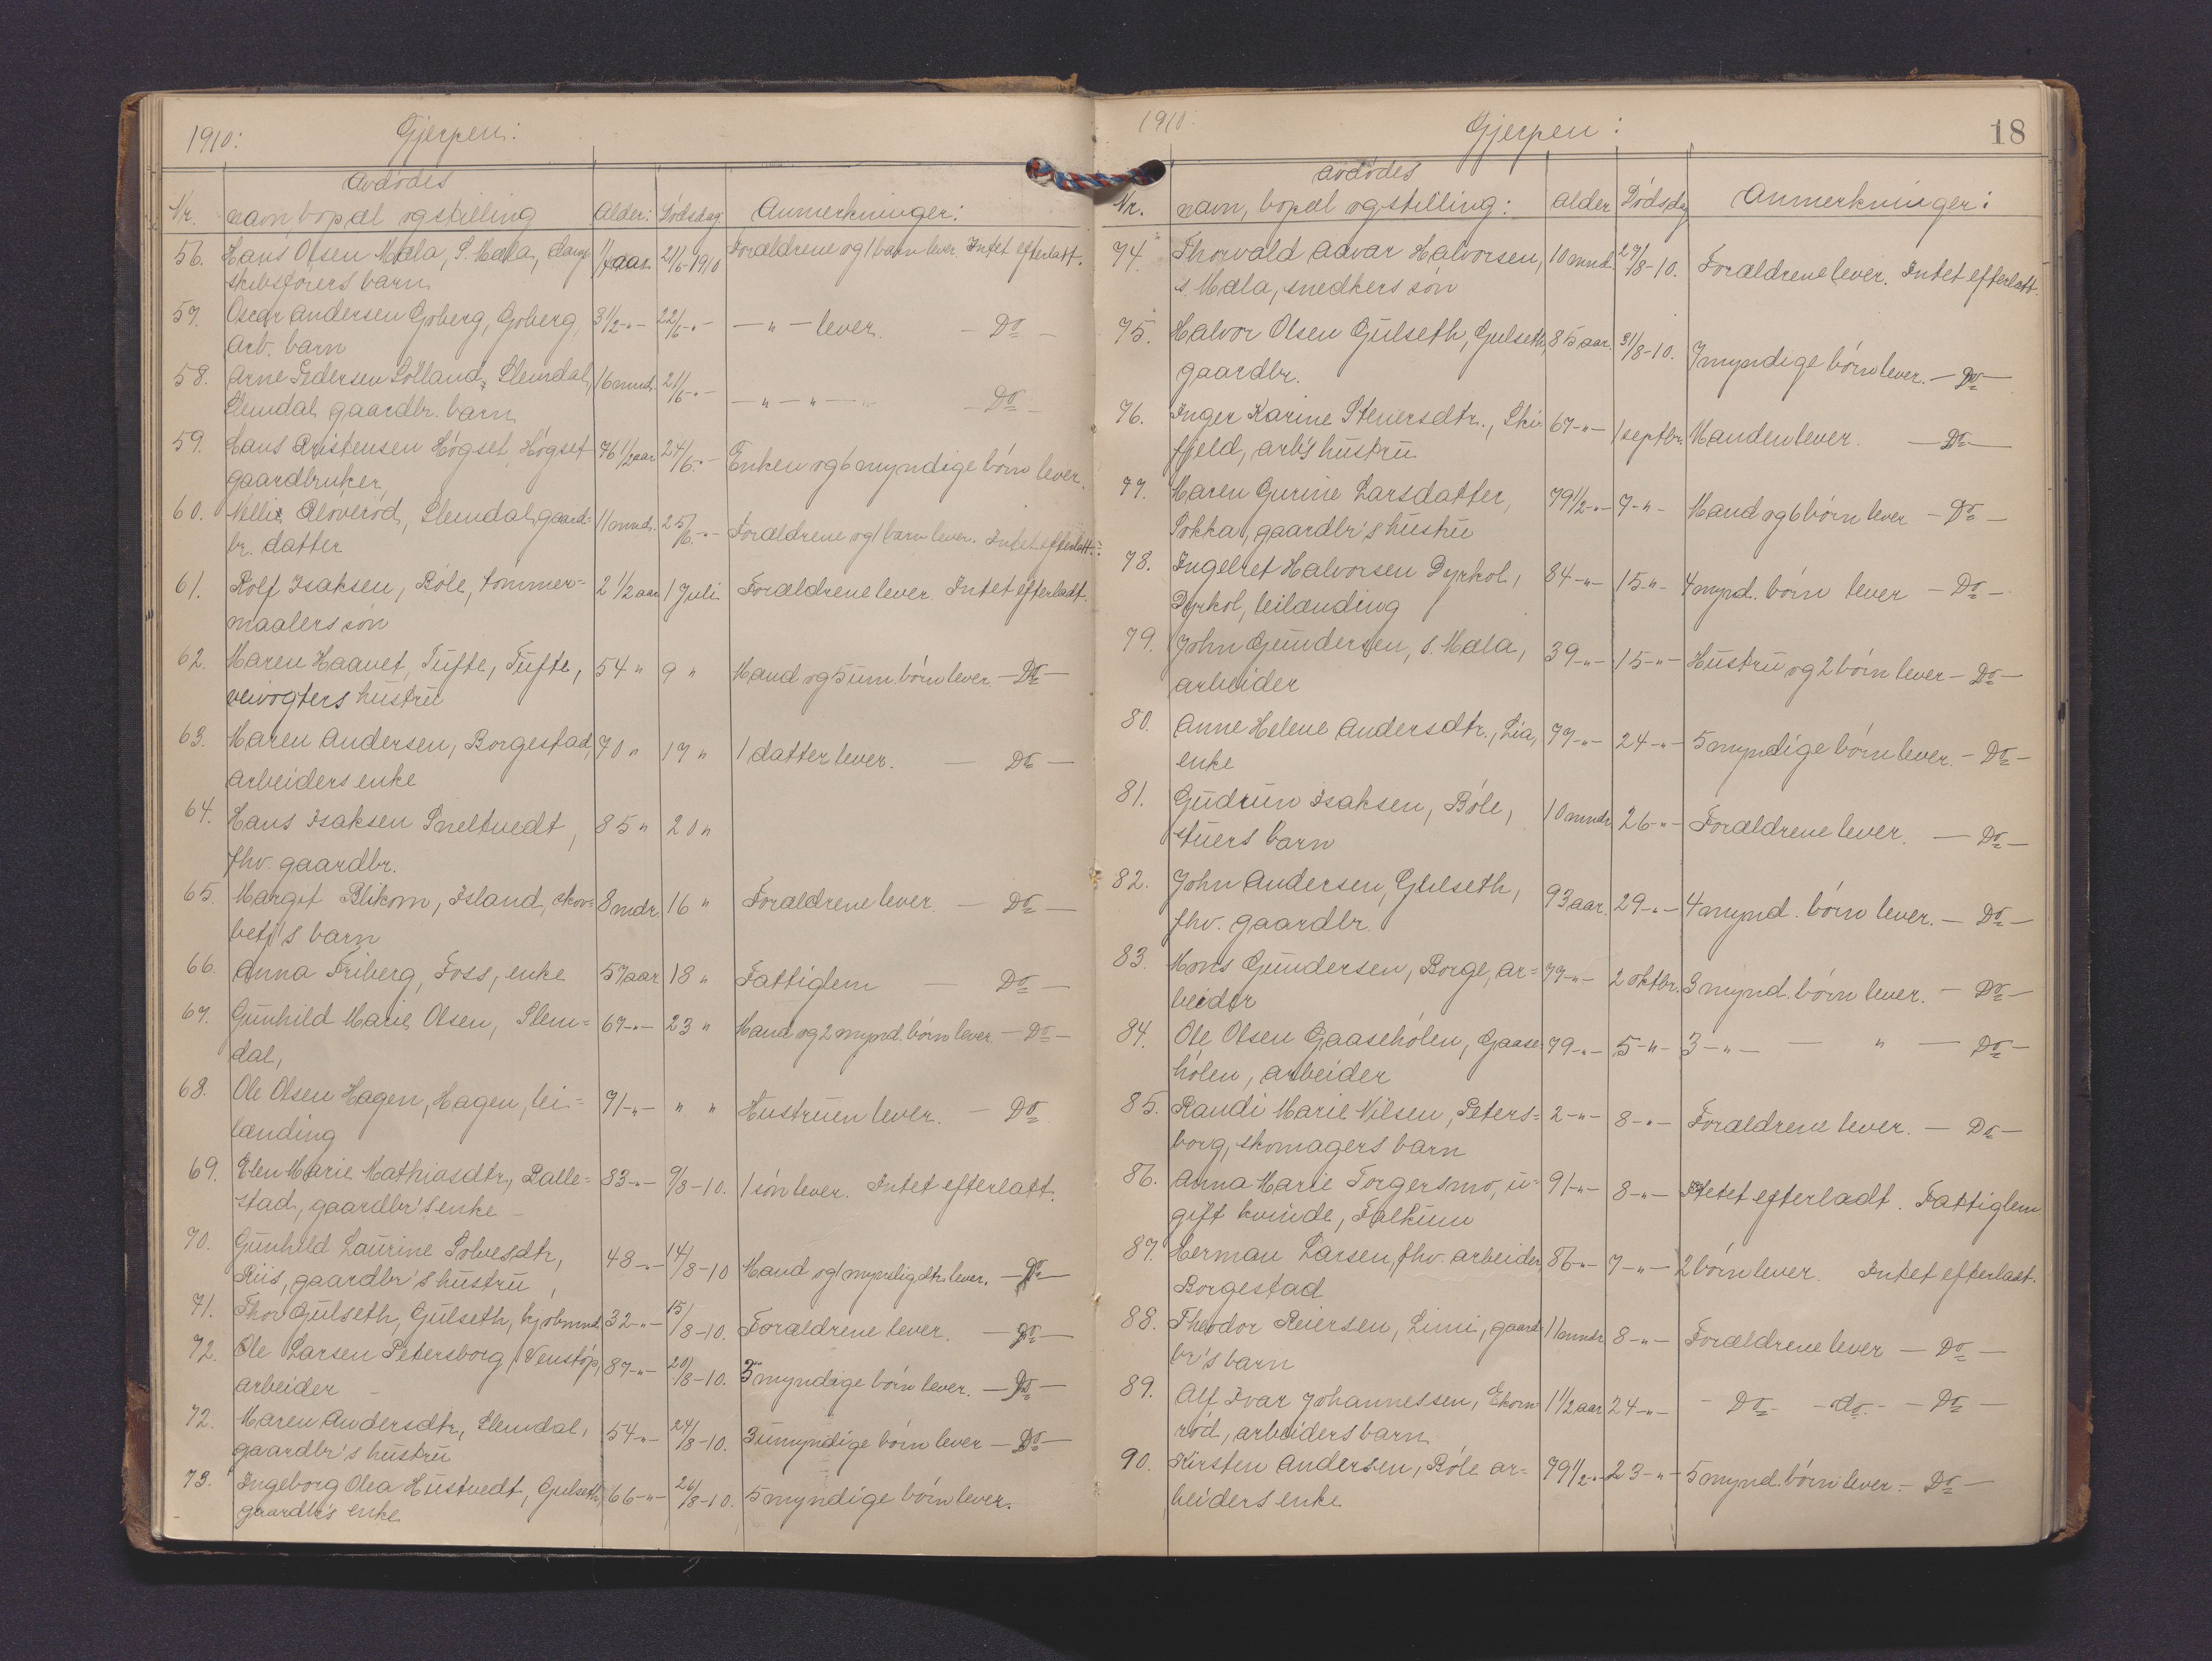 1910: Gjerpen:
Avdødes
Nr. navn, bopæl og stilling Alder: Dødsdag Anmerkninger:
56. Hans Olsen Mæla, S. Mæla, damp- aar 21/6-1910 Forældrene og 1 barn lever. Intet efterlatt.
skibsførers barn
57. Oscar Andersen Goberg, Goberg, 3 1/2 -"- 22/6 -"- -"- lever. - Do -
arb. barn
58. Arne Pedersen Solland, Slemdal, 16 mnd. 21/6 -"- -"-"- - Do -
Slemdal gaardbr. barn
59. Hans Kristensen Høgset, Høgset 76 1/2 aar 24/6 -"- Enken og 6 myndige børn lever.
gaardbruker
60. Kløverød, Slemdal, gaard= 11 mnd. 25/6 -"- Forældrene og 1 barn lever. Intet efterlatt.
br. datter
61. Rolf Isaksen, Bøle, tømmer= 2 1/2 aar 1 Juli Forældrene lever. Intet efterladt.
maalers søn
62. Maren Haavet, Tufte, Tufte, 54 " 9 " Mand og 5 um. børn lever. - Do -
veivogters hustru
63. Maren Andersen, Borgestad, 70 " 17 " 1 datter lever. - Do -
arbeiders enke
64. Hans Isaksen Sneltvedt, 85 " 20 "
fhv. gaardbr.
65. Margit Blikom, Island, skov= 8 mdr. 16 " Forældrene lever. - Do -
betj's barn
66. Anna Friberg, Foss, enke 57 aar 18 " Fattiglem - Do -
67. Gunhild Marie Olsen, Slem= 67 -"- 23 " Mand og 2 mynd. børn lever. - Do -
dal,
68. Ole Olsen Hagen, Hagen, lei= 71 -"- " " Hustruen lever. - Do
lænding
69. Elen Marie Mathiasdtr, Balle= 83 -"- 9/8-10. 1 søn lever. Intet efterlatt.
stad, gaardbr's enke -
70. Gunhild Laurine Solvesdtr, 48 -"- 14/8-10 Mand og 1 myndig dtr. lever. - Do -
Riis, gaardbr's hustru,
71. Thor Gulseth, Gulseth, kjøbmnd. 32 -"- 15/8-10. Forældrene lever. - Do -
72. Ole Larsen Petersborg, Venstøp, 87 -"- 20/8-10. 5 myndige børn lever. - Do -
arbeider -
72. Maren Andersdtr, Slemdal, 54 -"- 24/8-10. 3 umyndige børn lever - Do -
gaardbr's hustru
73. Ingeborg Olea Hustvedt, Gulseth, 66 -"- 26/8-10. 5 myndige børn lever.
gaardbr's enke
1910: Gjerpen: 18
Avdødes
Nr. navn, bopæl og stilling: Alder Dødsdag Anmerkninger:
74. Thorvald Aavar Halvorsen, 10 mnd. 27/8-10. Forældrene lever. Intet efterlatt.
s. Mæla, snedkers søn
75. Halvor Olsen Gulseth, Gulseth, 85 aar. 31/8-10. 7 myndige børn lever. - Do -
gaardbr.
76. Inger Karine Stenersdtr., Ski= 67 -"- 1 septbr. Manden lever. - Do -
fjeld, arb's hustru
77. Maren Gurine Larsdatter, 79 1/2 -"- 7 -"- Mand og 6 børn lever - Do -
Sokka, gaardbr's hustru
78. Ingebret Halvorsen Dyrkol, 84 -"- 15 -"- 4 mynd. børn lever - Do -
Dyrkol, leilænding
79. John Gundersen, s. Mæla, 39 -"- 15 -"- Hustru og 2 børn lever - Do -
arbeider
80. Anne Helene Andersdtr., Lia, 77 -"- 24 -"- 5 myndige børn lever. - Do -
enke
81. Gudrun Isaksen, Bøle, 10 mndr 26 -"- Forældrene lever. - Do -
stuers barn
82. John Andersen, Gulseth, 93 aar. 29 -"- 4 mynd. børn lever. - Do -
fhv. gaardbr.
83. Mons Gundersen, Borge, ar= 77 -"- 2 oktbr. 3 mynd. børn lever. - Do -
beider
84. Ole Olsen Gaasehølen, Gaase= 79 -"- 5 -"- 3 -"- - " - Do -
hølen, arbeider
85. Randi Marie Nilsen, Peters= 2 -"- 8 -"- Forældrene lever. - Do -
borg, skomagers barn
86. Anna Marie Torgersmo, u= 91 -"- 8 -"- Intet efterladt. Fattiglem
gift kvinde, Falkum
87. Herman Larsen, fhv. arbeider 86 -"- 7 -"- 2 børn lever. Intet efterlatt.
Borgestad
88. Theodor Reiersen, Limi, gaard= 11 mndr 8 -"- Forældrene lever - Do -
br's barn
89. Alf Ivar Johannessen, Ekorn= 1 1/2 aar 24 -"- - Do - - do. - - Do -
rød, arbeiders barn
90. Kirsten Andersen, Bøle ar= 79 1/2 -"- 23 -"- 5 mynd. børn lever. - Do -
beiders enke